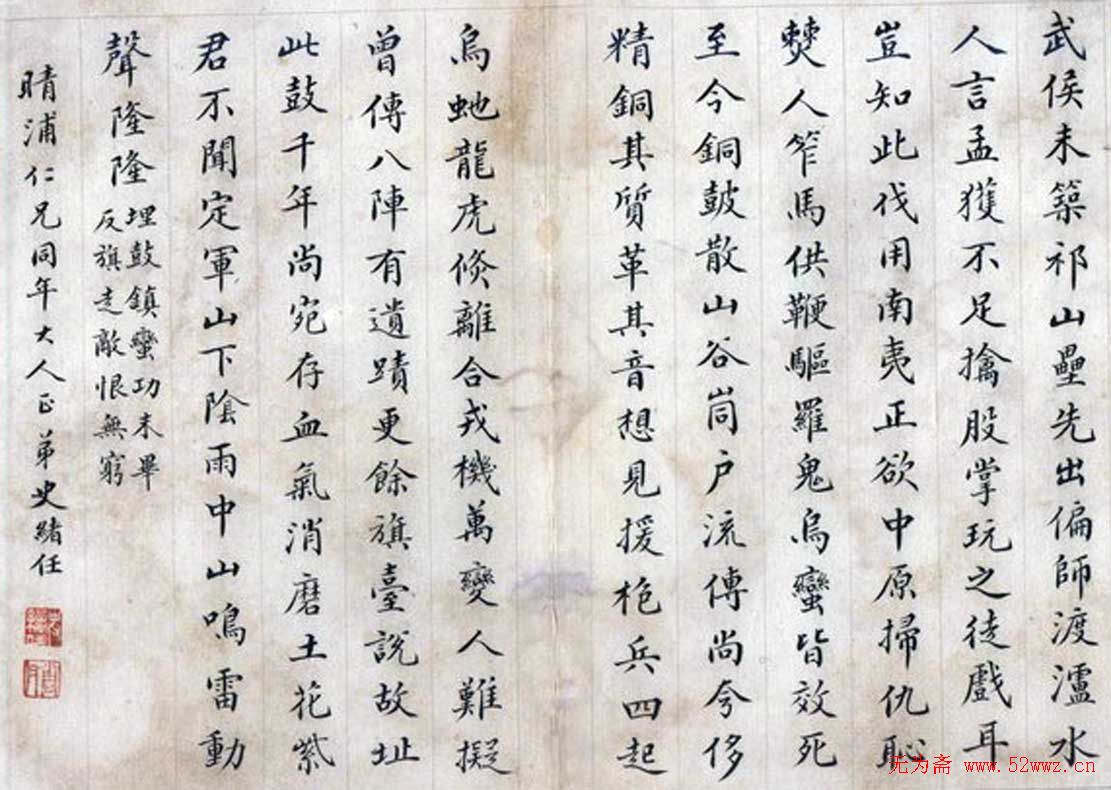 武侯未築祁山壘先出偏師渡瀘水
人言孟獲不足擒股掌玩之徒戲耳
豈知此伐用南夷正欲中原掃仇恥
僰人笮馬供鞭驅羅鬼烏蠻皆效死
至今銅鼓散山谷峝户流傳尚夸侈
精銅其質革其音想見援枹兵四起
鳥虵龍虎倐離合戎機萬變人難擬
曾傳八陣有遺蹟更餘旗臺說故址
此鼓千年尚宛存血氣消磨土花紫
君不聞定軍山下陰雨中山鳴雷動
聲隆隆埋鼓鎮蠻功未畢
反旗走敵恨無窮
晴浦仁兄同年大人正弟史緒任
无为斋 www.52wwz.cn